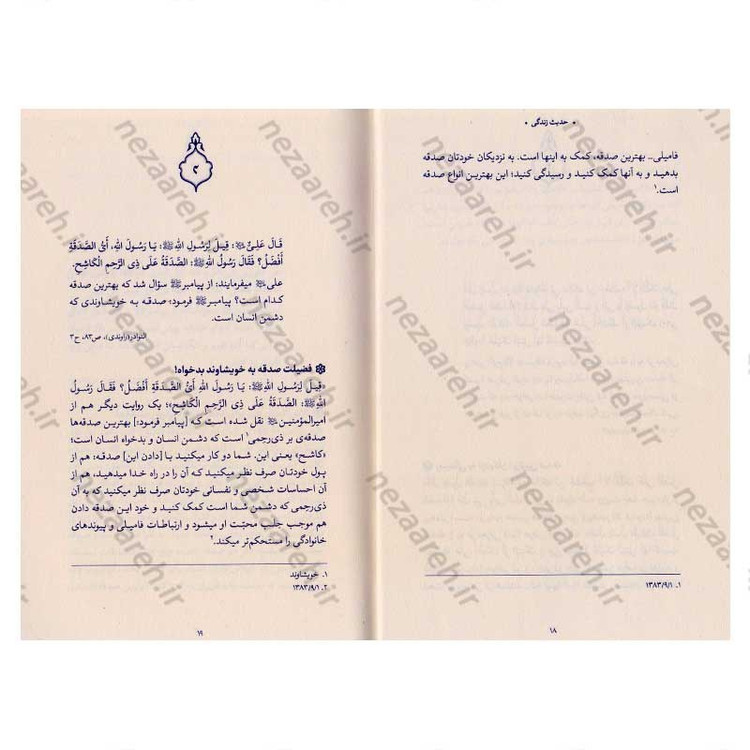 • حدیث زندگی •
فامیلی_ بهترین صدقه، کمک به اینها است. به نزدیکان خودتان صدقه
بدهید و به آنها کمک کنید و رسیدگی کنید؛ این بهترین انواع صدقه
است.۱
۱. ۱۳۸۳/۹/۱
۱۸
۲
قَالَ عَلِیٌّ ﷺ: قِیلَ لِرَسُولِ اللهِ ﷺ: یَا رَسُولَ اللهِ، أَیُّ الصَّدَقَةِ
أَفْضَلُ؟ فَقَالَ رَسُولُ اللهِ ﷺ: الصَّدَقَةُ عَلَی ذِی الرَّحِمِ الْکَاشِحِ.
علی میفرمایند: از پیامبر ﷺ سؤال شد که بهترین صدقه
کدام است؟ پیامبر ﷺ فرمود: صدقه به خویشاوندی که
دشمن انسان است.
النوادر(راوندی)، ص۸۳، ح۳
فضیلت صدقه به خویشاوند بدخواه!
«قِیلَ لِرَسُولِ اللهِ ﷺ: یَا رَسُولَ اللهِ أَیُّ الصَّدَقَةِ أَفْضَلُ؟ فَقَالَ رَسُولُ
اللهِ ﷺ: الصَّدَقَةُ عَلَی ذِی الرَّحِمِ الْکَاشِحِ»؛ یک روایت دیگر هم از
امیرالمؤمنین نقل شده است که [پیامبر فرمود:] بهترین صدقه‌ها
صدقه‌ی بر ذی‌رحمی۱ است که دشمن انسان و بدخواه انسان است؛
«کاشح» یعنی این. شما دو کار میکنید با [دادن این] صدقه: هم از
پول خودتان صرف نظر میکنید که آن را در راه خدا میدهید، هم از
آن احساسات شخصی و نفسانی خودتان صرف نظر میکنید که به آن
ذی‌رحمی که دشمن شما است کمک کنید و خود این صدقه دادن
هم موجب جلب محبّت او میشود و ارتباطات فامیلی و پیوندهای
خانوادگی را مستحکم‌تر میکند.۲
۱. خویشاوند
۲. ۱۳۸۳/۹/۱
۱۹
nezaareh.ir
nezaareh.ir
nezaareh.ir
nezaareh.ir
nezaareh.ir
nezaareh.ir
nezaareh.ir
nezaareh.ir